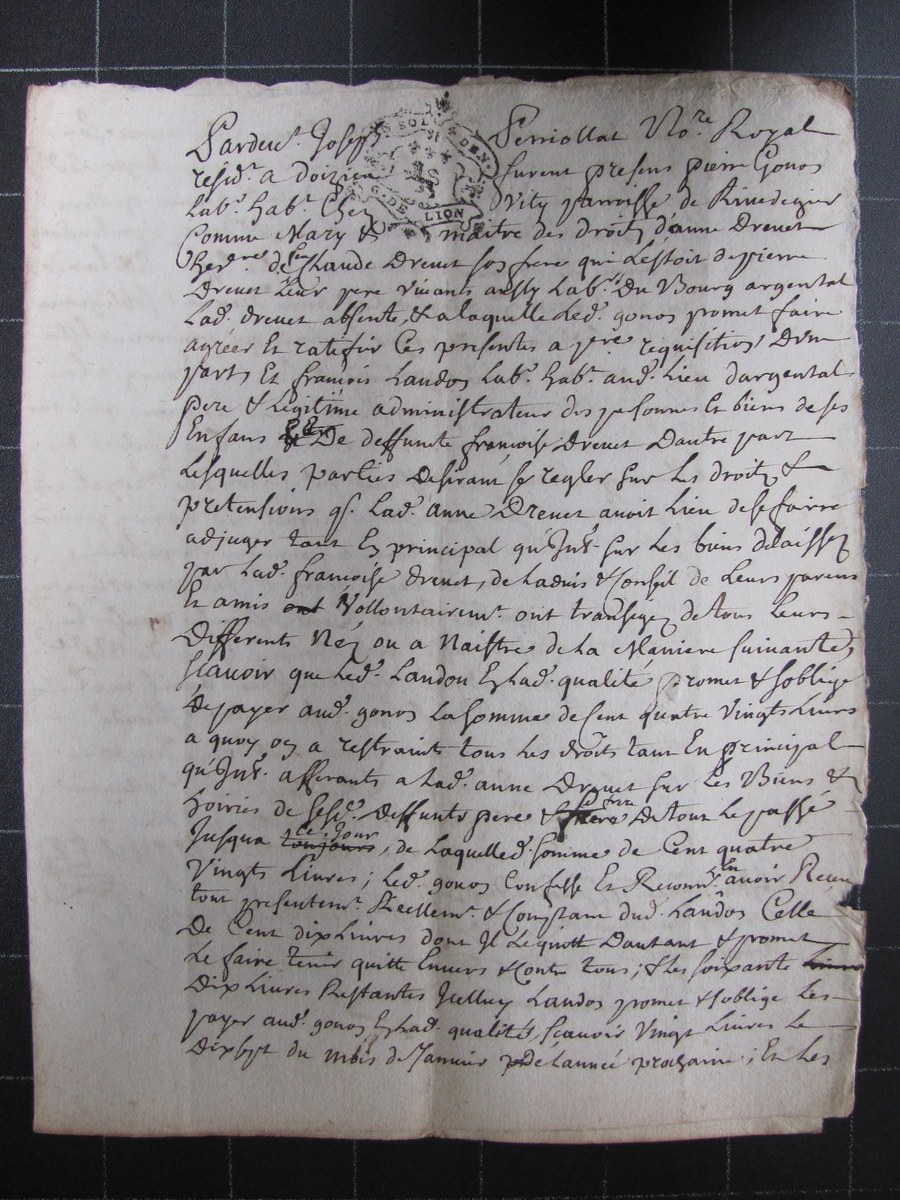 Pardev.t Joseph Perriollat No.re Royal
resid.t a doizieu furent presens pierre Gonos
Lab.r hab.t Chez Vity parroisse de
Comme Mary & maitre des droits d'anne Drevet
her.re de feu Claude Drevet son frere qui l'estoit de pierre
Drevet Leur pere vivants aussy Lab.rs Du Bourg argental
Lad. drevet absente, & a laquelle led. gonos promet faire
agréer Et ratiffier Ces presentes a p.ere requisition, D'une
part, Et françois Landos Lab.r hab.t aud. Lieu dargental
pere & Legitime administrateur des personnes Et biens de ses
Enfans & De deffunte françoise Drevet D'autre part
Lesquelles parties desirant se regler sur les droits &
pretensions q. Lad. anne Drevet avoit Lieu de se fairre
adjuger tant En principal qu'Jnt. sur Les biens délaissez
par Lad. françoise drevet, de Ladvis & Conseil de Leurs parens
Et amis ont Vollontairem.t ont transigez de tous Leurs
Differents Néz ou a Naistre de La Maniere suivante,
sçavoir que Led. Landon En lad. qualité promet & soblige
de payer aud. gonos La somme de Cent quatre Vingts Livres
a quoy on a restraint tous Les droits tant En principal
qu'Jnt. afferants a Lad. anne Drevet sur Les Biens &
hoiries de sesd. deffunts pere & frere De tout Le passé
Jusqua toujours ce jour, de Laquelle d. somme de Cent quatre
Vingts Livres; Led. gonos Confesse Et Reconn. En avoir Receu
tout presentem.t Reellem.t & Comptant dud. Landos Celle
De Cent dix Livres dont Jl Le quitte Dautant & promet
Le faire tenir quitte Envers & Contre tous; & Les soixante
Dix Livres Restantes Jcelluy Landos promet & soblige Les
payer aud. gonos En lad. qualité, sçavoir Vingt Livres Le
Dix sept du mois de Janvier de Lannée prochaine; Et Les
SOL DEN
G. DE LION